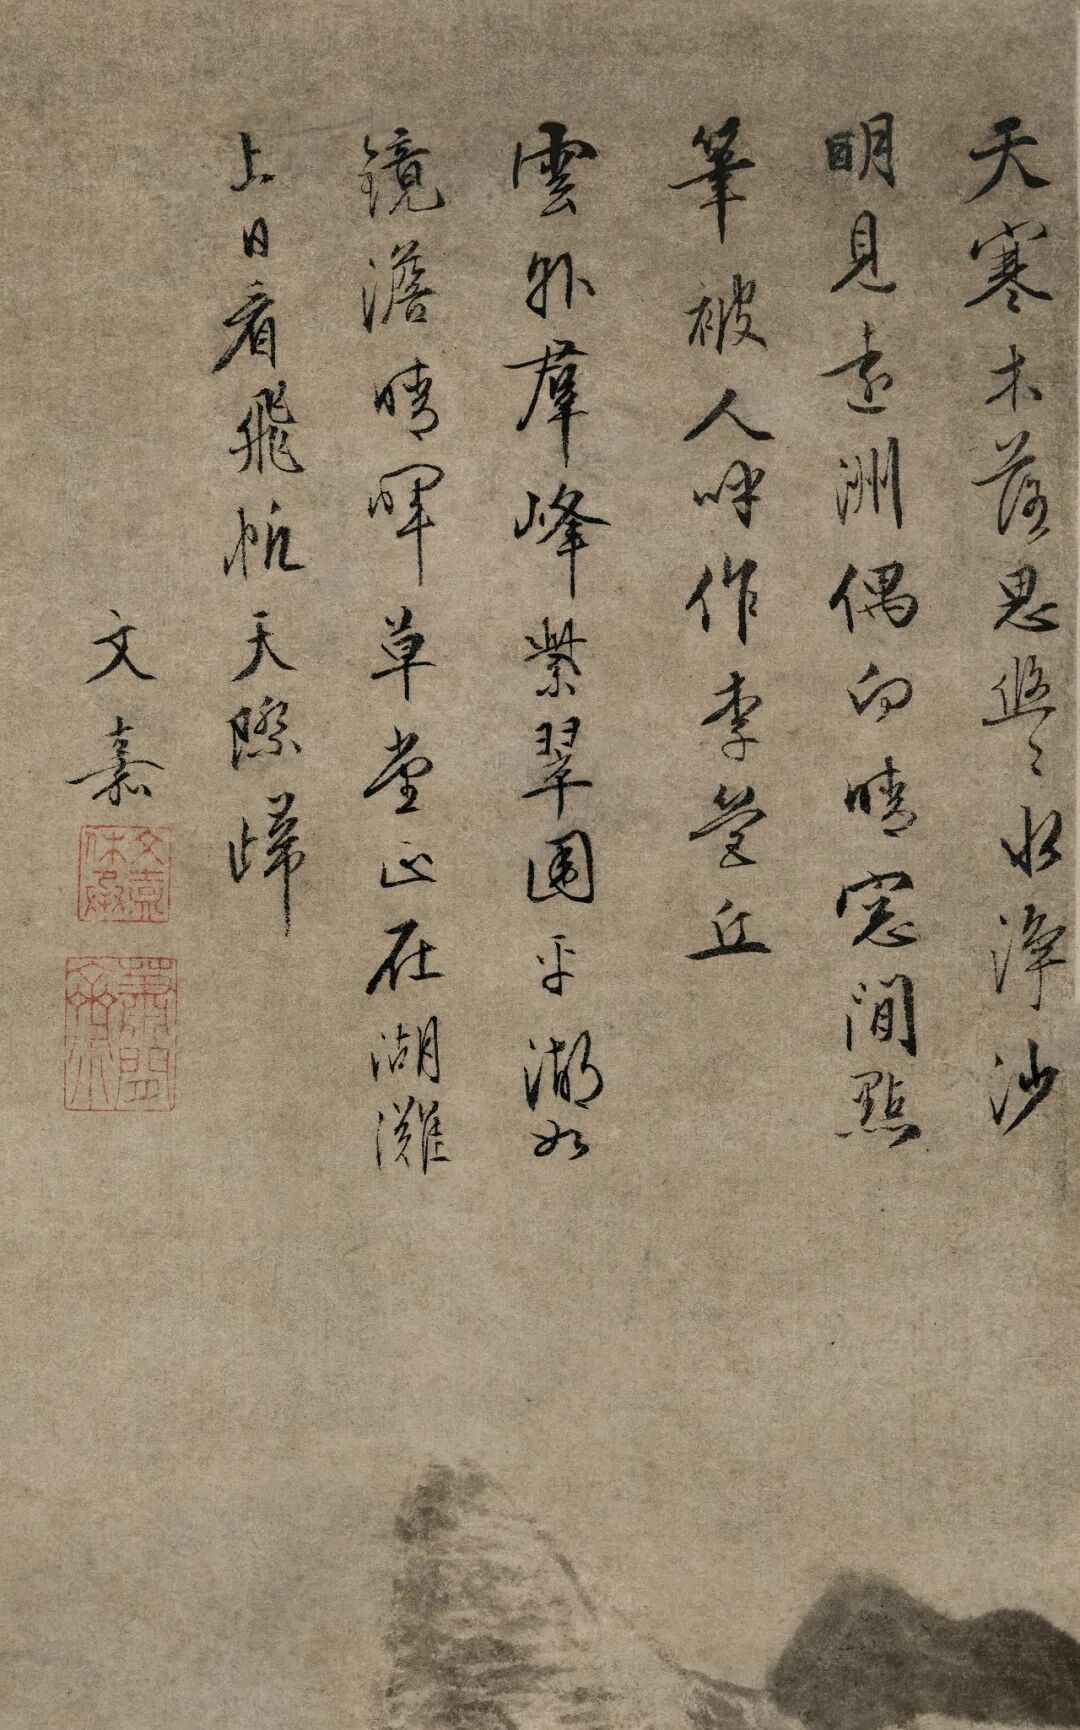 天寒木落思悠々水净沙
明見遠洲偶向晴窓間點
筆被人呼作李營丘
雲外群峰紫翠圍平湖如
鏡澹晴暉草堂正在湖灘
上日看飛帆天際歸
文嘉
文嘉休承